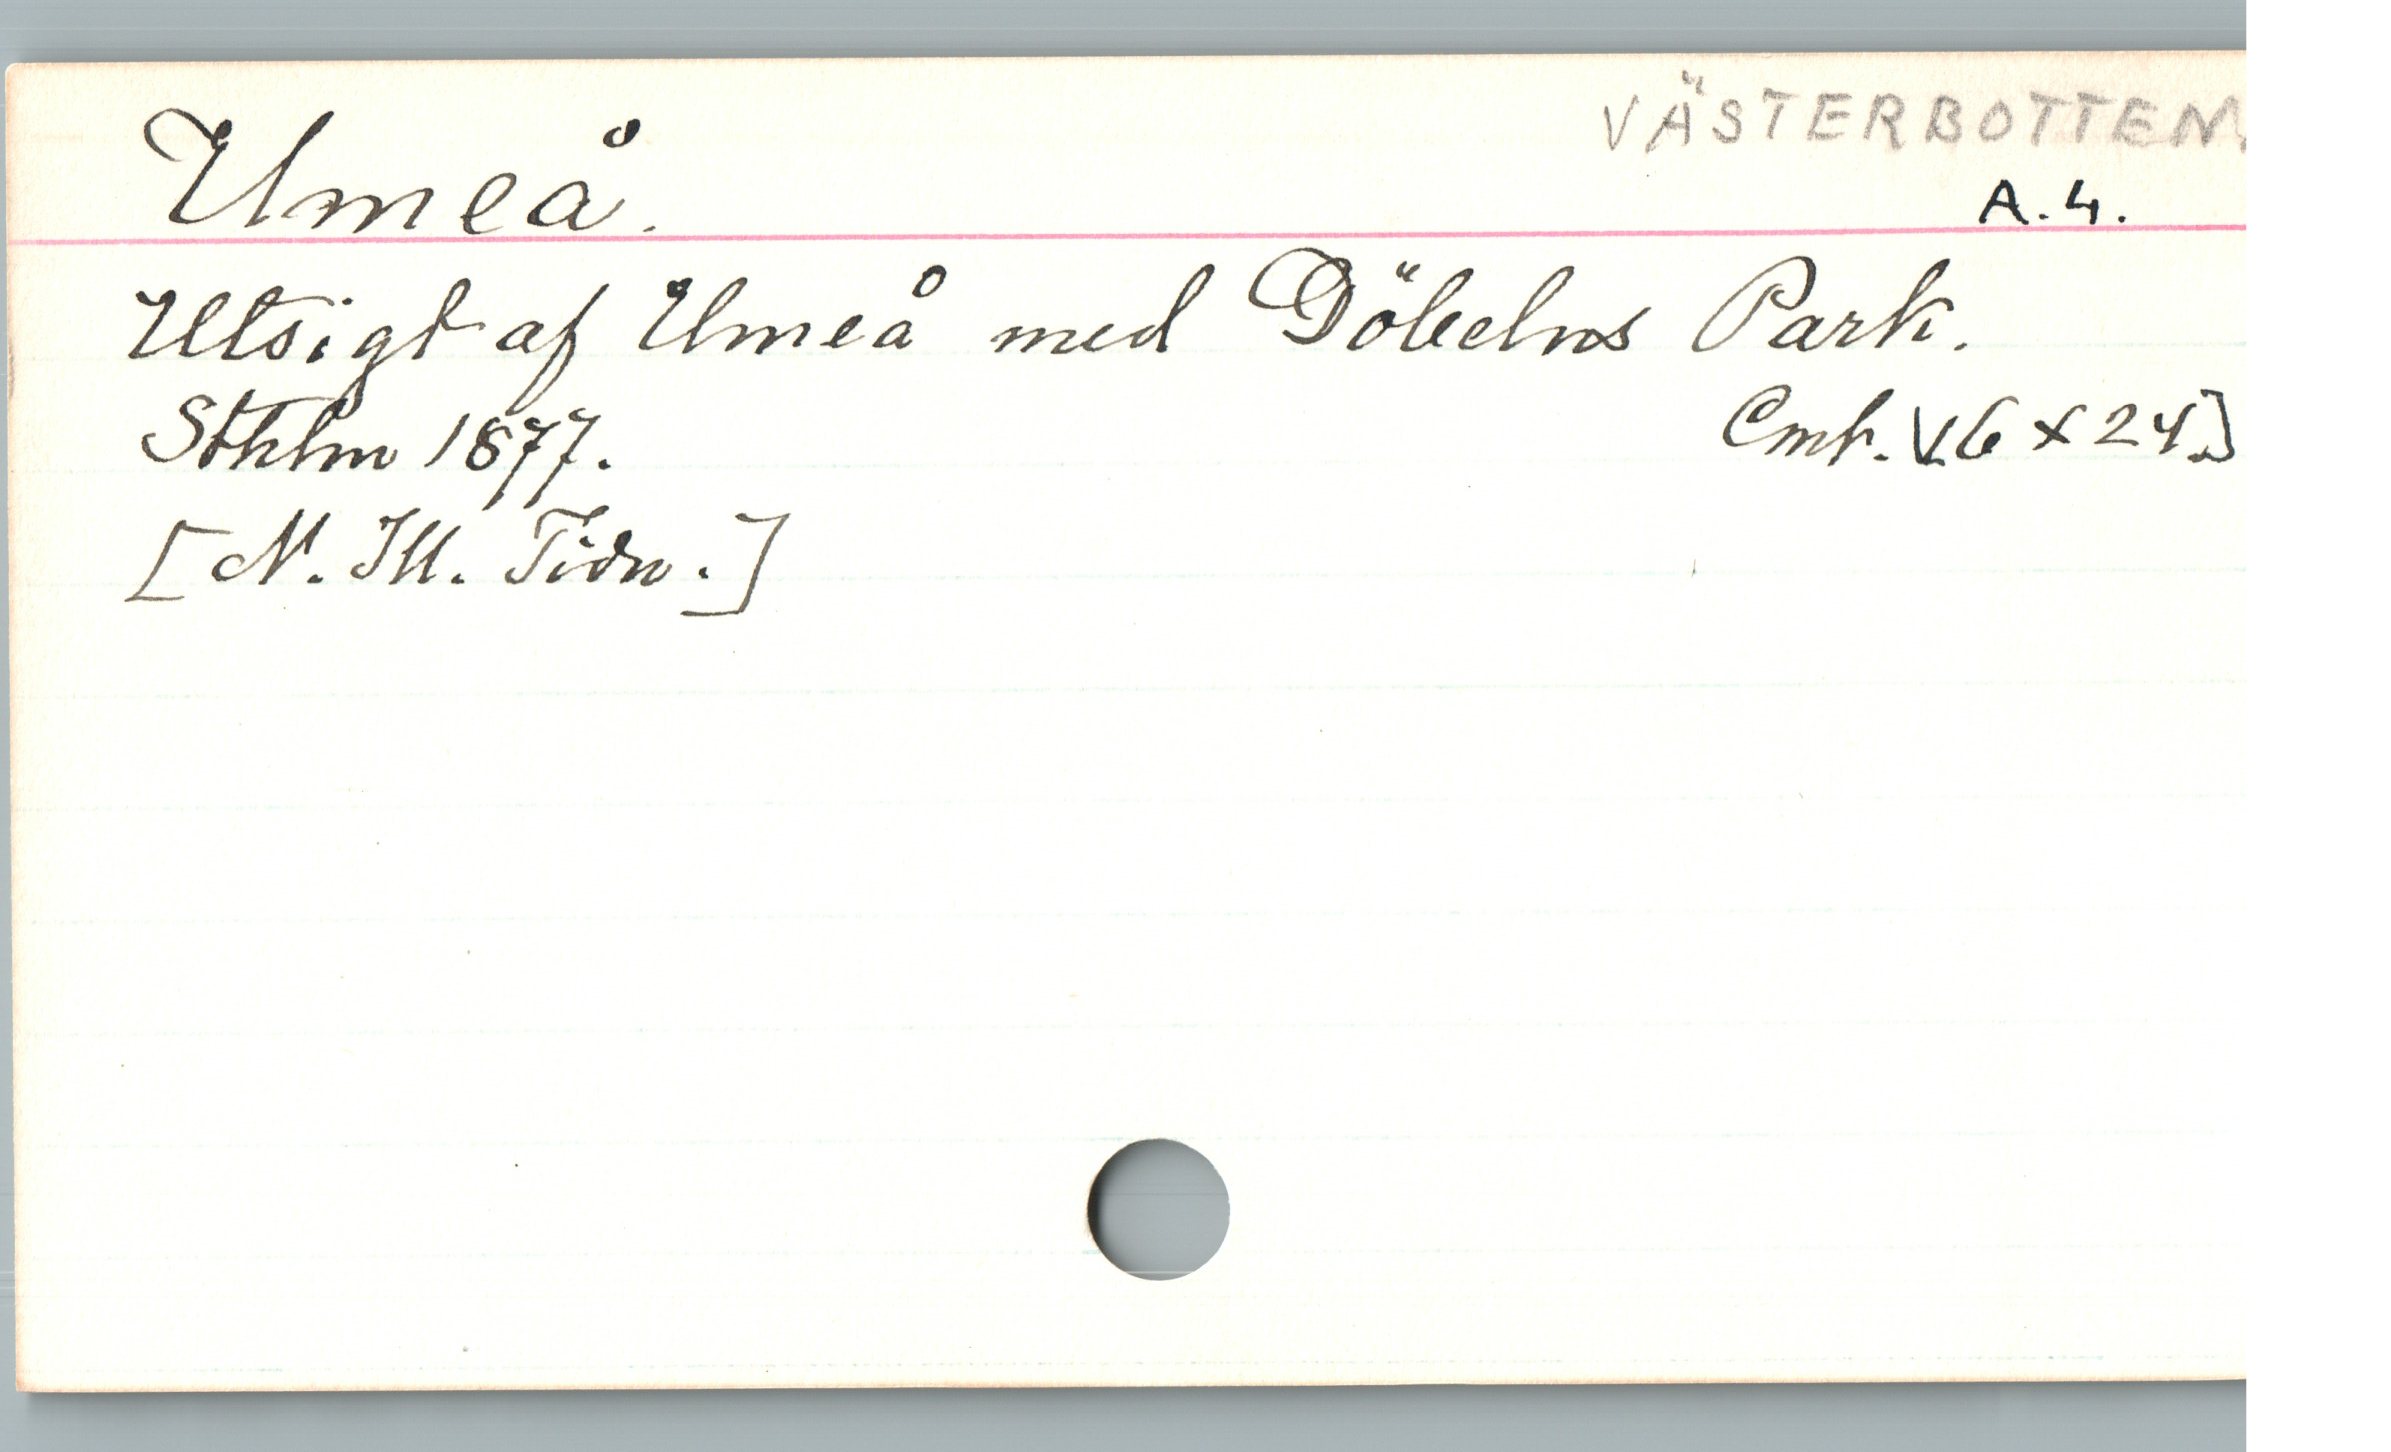 VÄSTERBOTTEN.
Umeå.
A.4.
Utsigt af Umeå med Döbelns Park.
Sthlm 1877.
[16 x 24.]
[N. Ill. Tidn.]